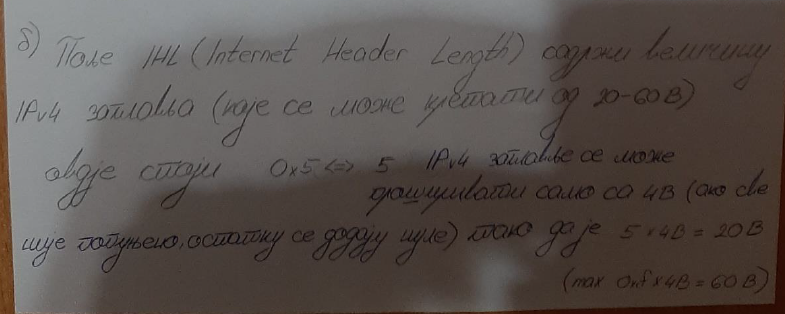 б) Поље IHL (Internet Header Length) садржи величину
IPv4 заглавља (које се може кретати од 20-60B)
овдје стоји 0x5 <=> 5 IPv4 заглавље се може
проширивати само са 4B (ако све
није попуњено, остатку се додају нуле) тако да је 5 × 4B = 20B
(max 0xf × 4B = 60B)